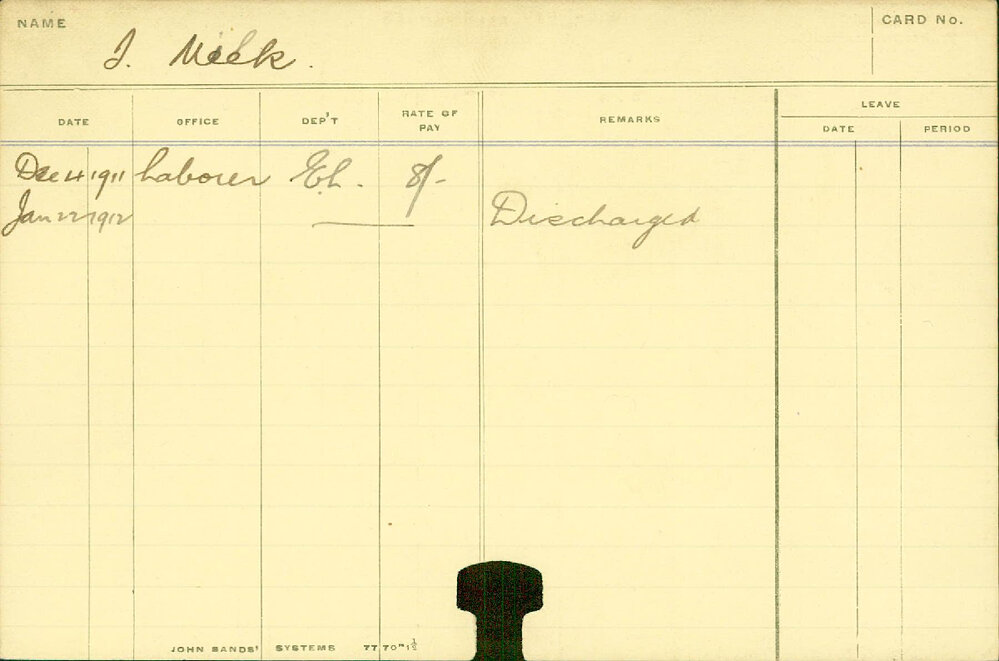 NAME
CARD No.
J. Meek.
DATE OFFICE DEP'T RATE OF PAY REMARKS LEAVE
DATE PERIOD
Dec 4 1911 Laborer E.L. 8/-
Jan 22 1912 Discharged
JOHN SANDS' SYSTEMS 77707 1½